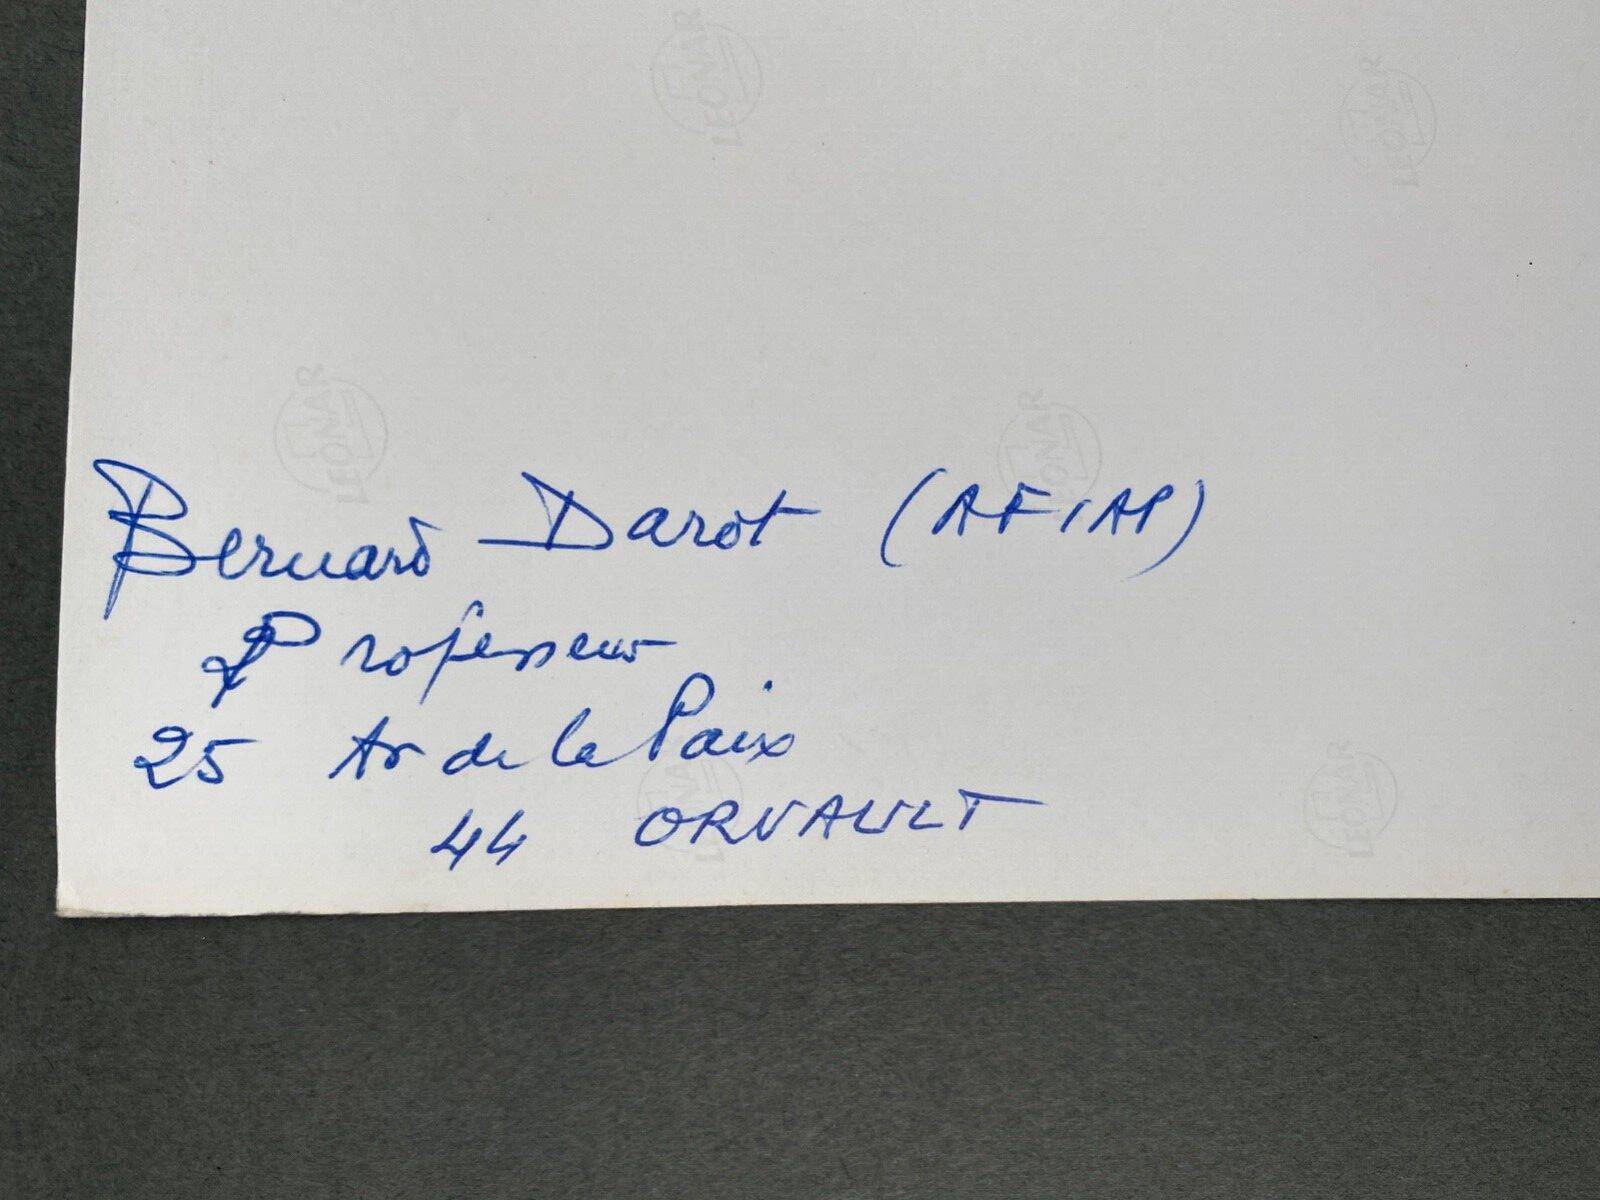 LEONAR
LEONAR
LEONAR
LEONAR
Bernard Darot (AFIAP)
Professeur
25 Av de la Paix
44 ORVAULT
LEONAR
LEONAR